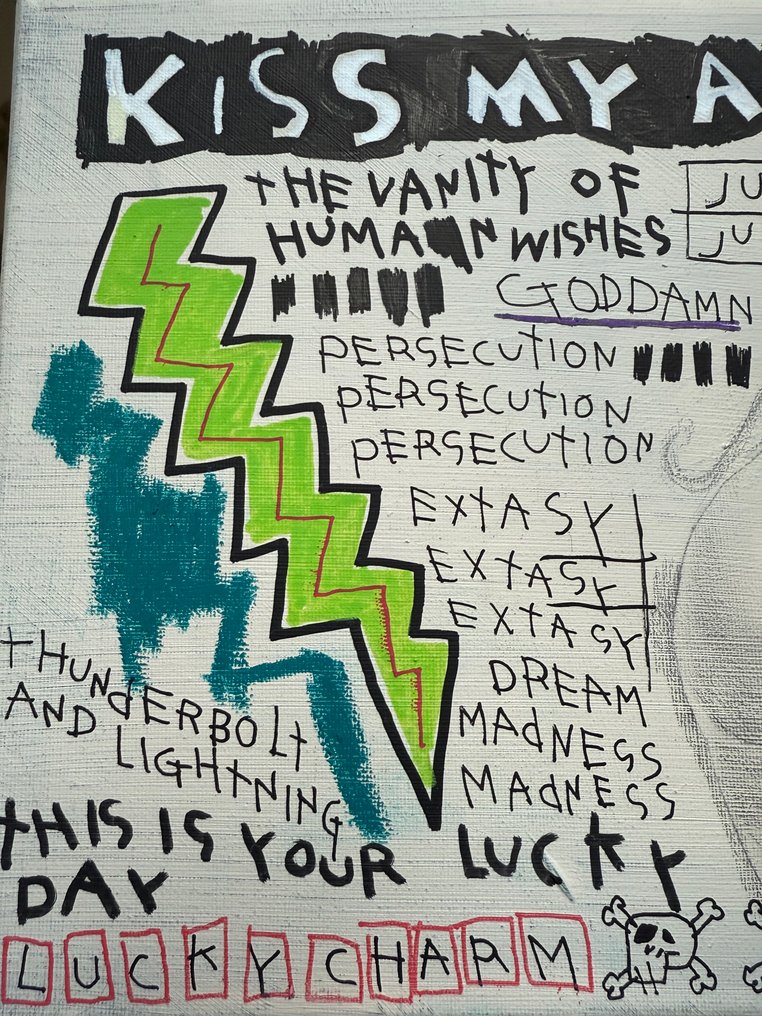 KISS MY A
THE VANITY OF
HUMAN WISHES
JU
JU
GODDAMN
PERSECUTION
PERSECUTION
PERSECUTION
EXTASY
EXTASY
EXTASY
DREAM
MADNESS
MADNESS
THUNDERBOLT
AND LIGHTNING
THIS IS YOUR LUCKY
DAY
LUCKY CHARM